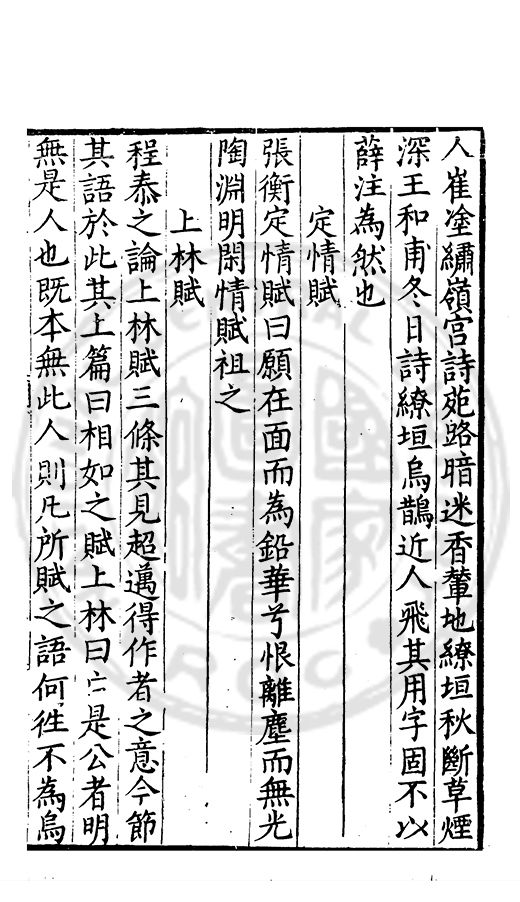 人崔塗繡嶺宮詩苑路暗迷香輦地繚垣秋斷草煙
深王和甫冬日詩繚垣烏鵲近人飛其用字固不以
薛注為然也
定情賦
張衡定情賦曰願在面而為鉛華兮恨離塵而無光
陶淵明閑情賦祖之
上林賦
程泰之論上林賦三條其見超邁得作者之意今節
其語於此其上篇曰相如之賦上林曰亡是公者明
無是人也既本無此人則凡所賦之語何徃不為烏